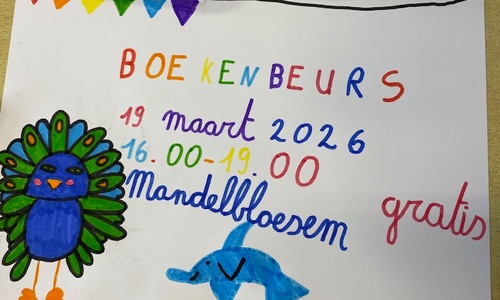 BOEKENBEURS
19 maart 2026
16.00-19.00
Mandelbloesem
gratis